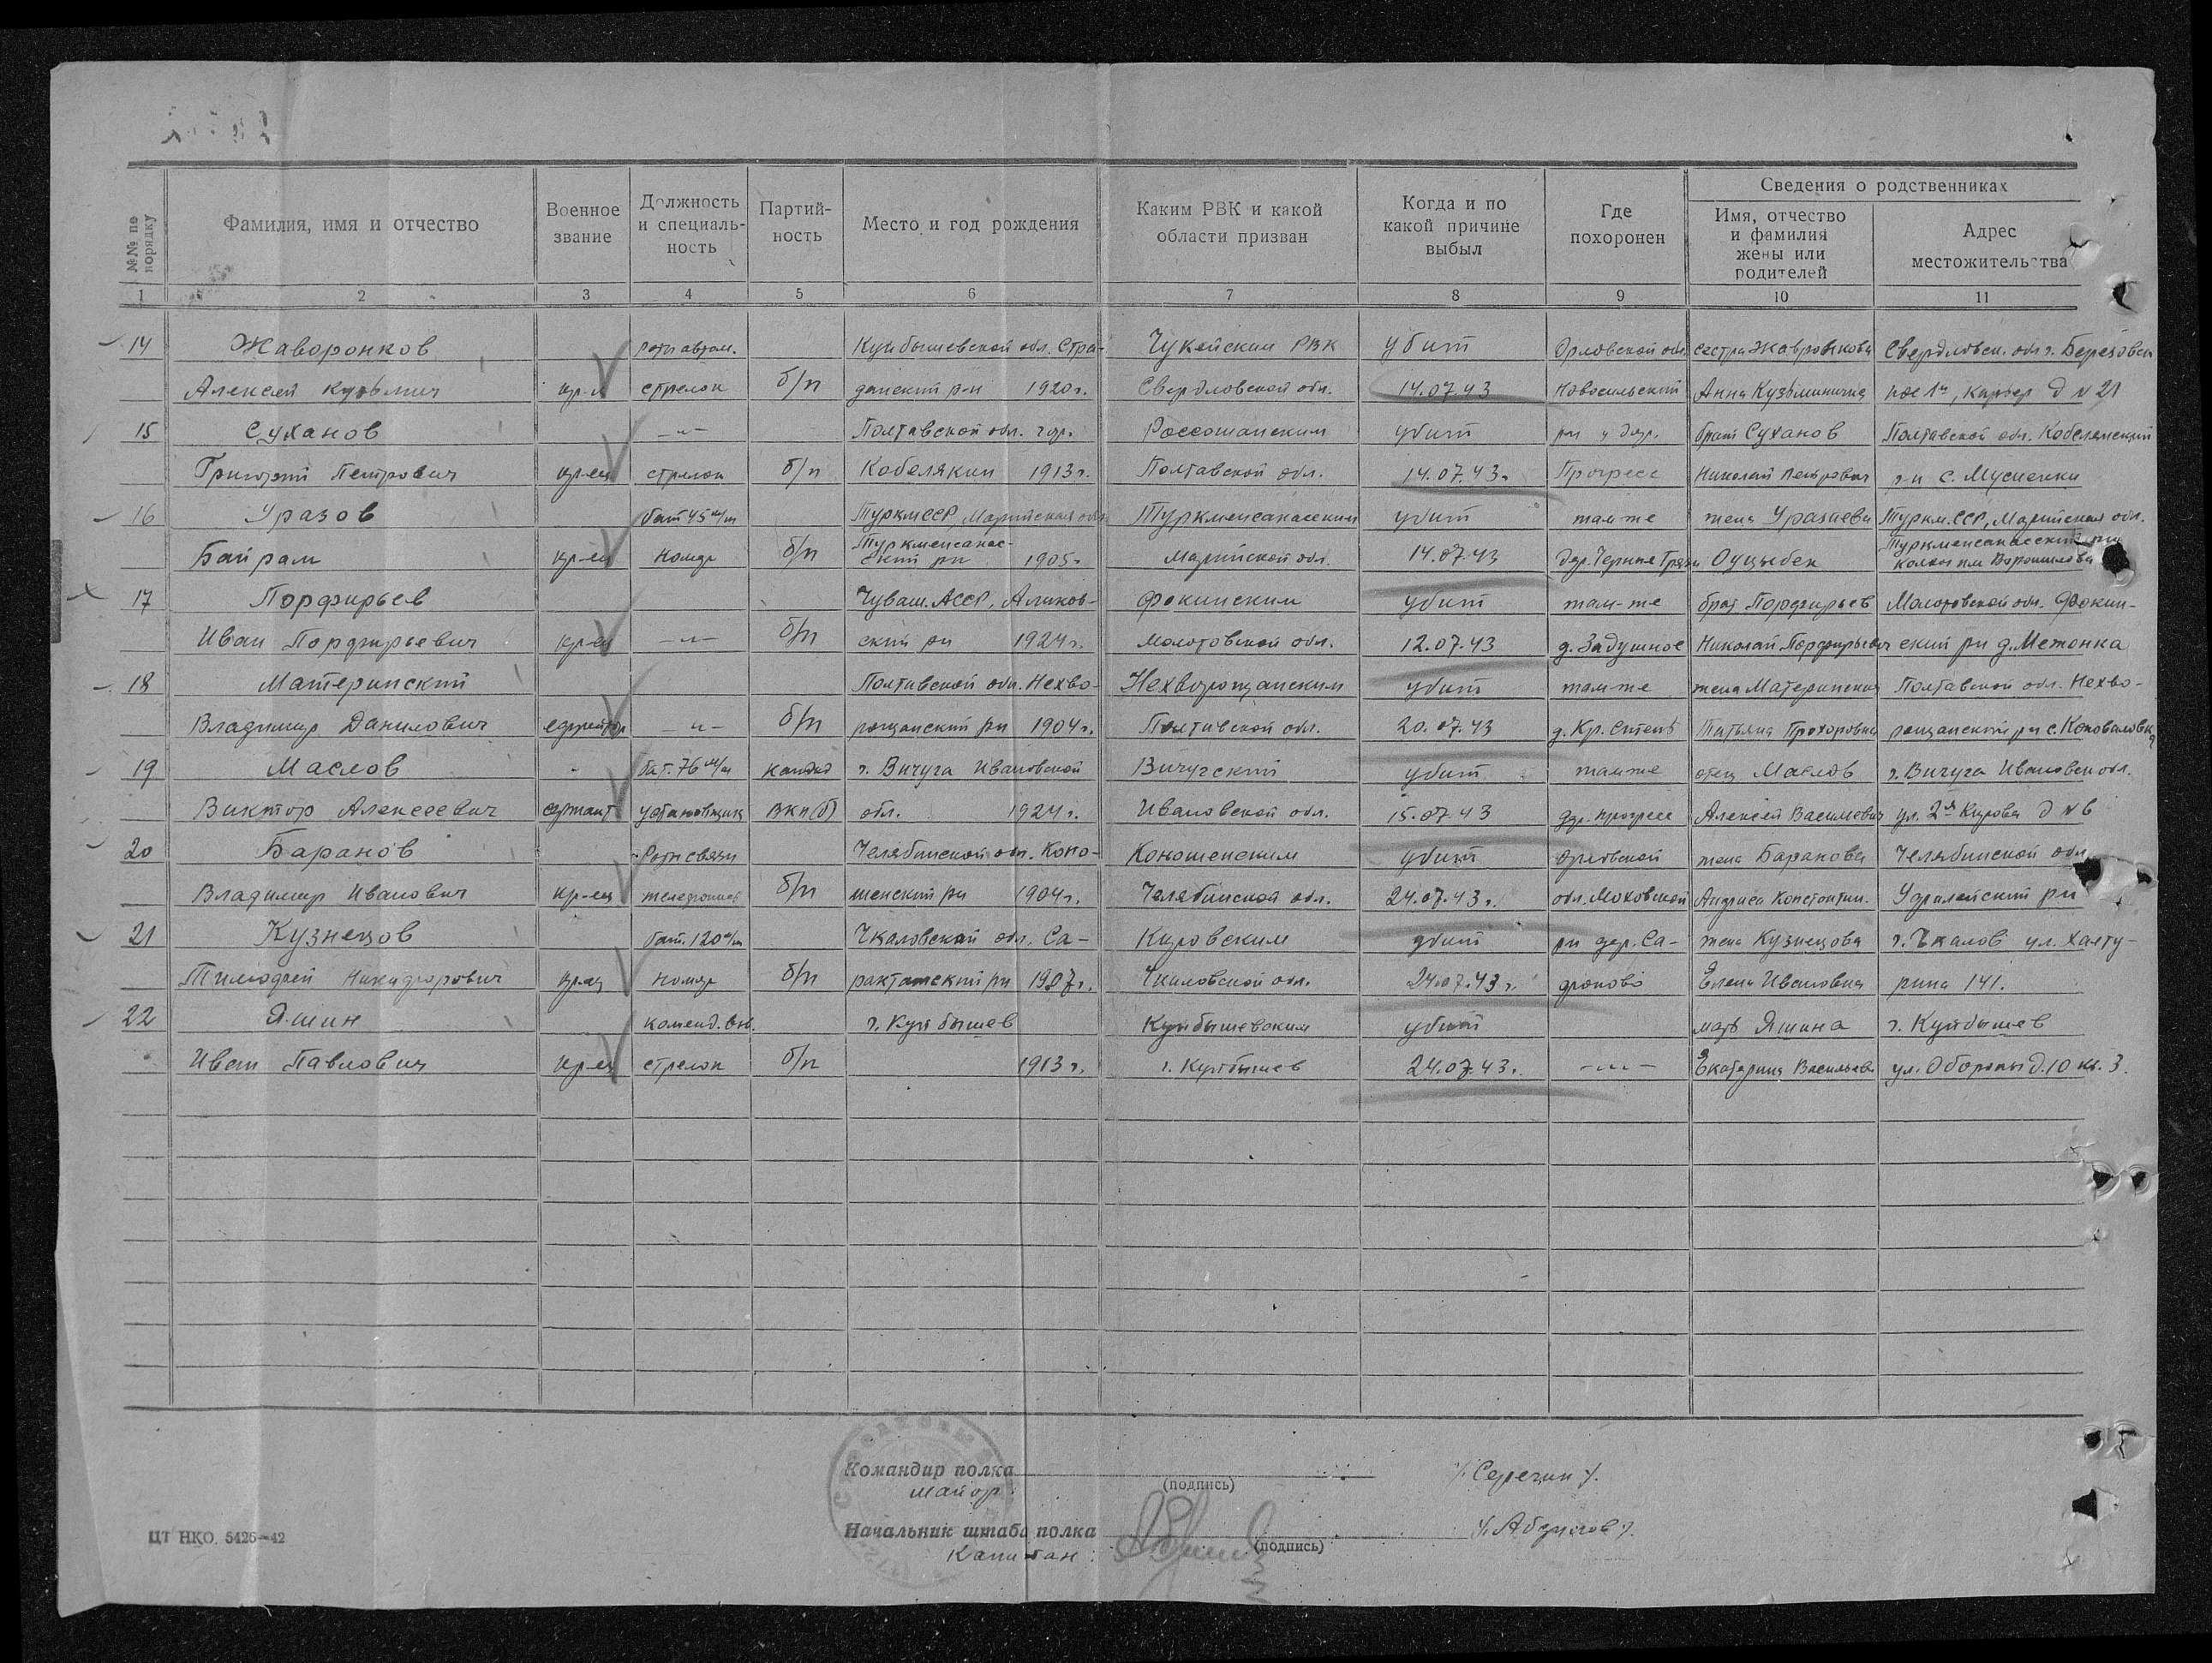 Сведения о родственниках
№№ по порядку
Фамилия, имя и отчество
Военное звание
Должность и специальность
Партийность
Место и год рождения
Каким РВК и какой области призван
Когда и по какой причине выбыл
Где похоронен
Имя, отчество и фамилия жены или родителей
Адрес местожительства
1 2 3 4 5 6 7 8 9 10 11
14 Жаворонков Куйбышевской обл. Чукойским РВК убит Орловской обл. сестра Свердловск. обл. г. Березовск
Алексей Кузьмич стрелок б/п 1920 г. Свердловской обл. 14.07.43 Новосильский Анна Кузьминична карьер д № 21
15 Суханов —"— Полтавской обл. гор. Россошанским убит рн у дер. брат Суханов Полтавской обл. Кобелякский
Григорий Петрович кр-ец стрелок б/п Кобелякии 1913 г. Полтавской обл. 14.07.43 г. Прогресс Николай Петрович р-н с.
16 Уразов бат 45 м/м ТуркмССР Марийская обл. убит там-же жена Туркм.ССР, Марийская обл.
Байрам кр-ец номер б/п Туркменсанасский рн 1905 г. Марийской обл. 14.07.43 дер. Черные Грязи Туркменсанасский рн колхоз им Ворошилова
17 Порфирьев Чуваш. АССР, Аликов- Фокинским убит там-же брат Порфирьев Молотовской обл. Фокин-
Иван Порфирьевич кр-ец —"— б/п ский рн 1924 г. Молотовской обл. 12.07.43 д. Задушное Николай Порфирьевич ский рн д.
18 Материнский Полтавской обл. Нехво- Нехворощанским убит там-же жена Материнская Полтавской обл. Нехво-
Владимир Данилович ефрейтор —"— б/п рощанский рн 1904 г. Полтавской обл. 20.07.43 д. Кр. Степь Татьяна Прохоровна рощанский рн с. Коноваловка
19 Маслов бат. 76 м/м кандид г. Вичуга Ивановской Вичугский убит там же отец Маслов г. Вичуга Ивановск обл.
Виктор Алексеевич сержант установщик ВКП(б) обл. 1924 г. Ивановской обл. 15.07.43 дер. прогресс Алексей Васильевич ул. 2я Кирова д № 6
20 Баранов Рота связи Челябинской обл. Коно- Коношенским убит Орловской жена Баранова Челябинской обл.
Владимир Иванович кр-ец телефонист б/п шенский рн 1904 г. Челябинской обл. 24.07.43 г. обл. Моховской Константин. рн
21 Кузнецов бат. 120 м/м Чкаловской обл. Са- Кировским убит рн дер. Са- жена Кузнецова г. Чкалов ул. Халту-
Тимофей Никифорович кр-ец номер б/п ракташский рн 1907 г. Чкаловской обл. 24.07.43 г. фоново Елена Ивановна рина 141.
22 Яшин коменд. вз. г. Куйбышев Куйбышевским убит мать Яшина г. Куйбышев
Иван Павлович кр-ец стрелок б/п 1913 г. г. Куйбышев 24.07.43 г. —"— Екатерина Васильев ул. Обороны д. 10 кв. 3.
Командир полка (подпись)
майор:
Начальник штаба полка (подпись)
Капитан:
ЦТ НКО. 5426—42